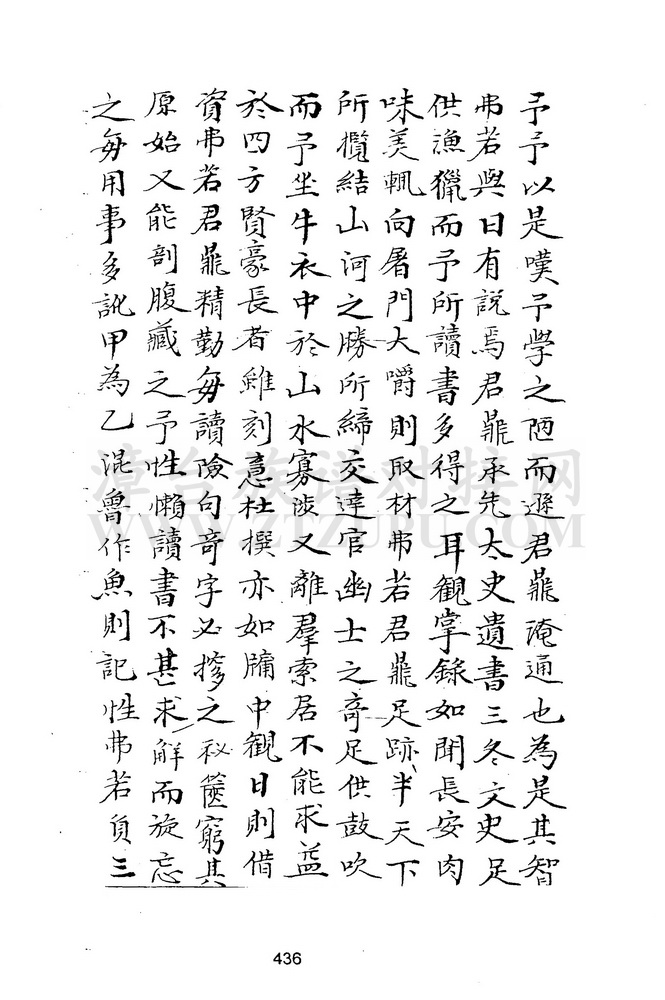 予予以是嘆予學之陋而遜君鼐淹通也為是其智
弗若與曰有說焉君鼐承先太史遺書三冬文史足
供漁獵而予所讀書多得之耳觀掌錄如聞長安肉
味美輒向屠門大嚼則取材弗若君鼐足跡半天下
所攬結山河之勝所締交達官幽士之奇足供鼓吹
而予坐牛衣中於山水寡涉又離羣索居不能求益
於四方賢豪長者雖刻意杜撰亦如牖中觀日則借
資弗若君鼐精勤每讀險句奇字必摉之祕篋窮其
原始又能剖腹藏之予性懶讀書不甚求解而旋忘
之每用事多訛甲為乙混魯作魚則記性弗若負三
漳台族谱对接网
WWW.ZTZUPU.COM
436